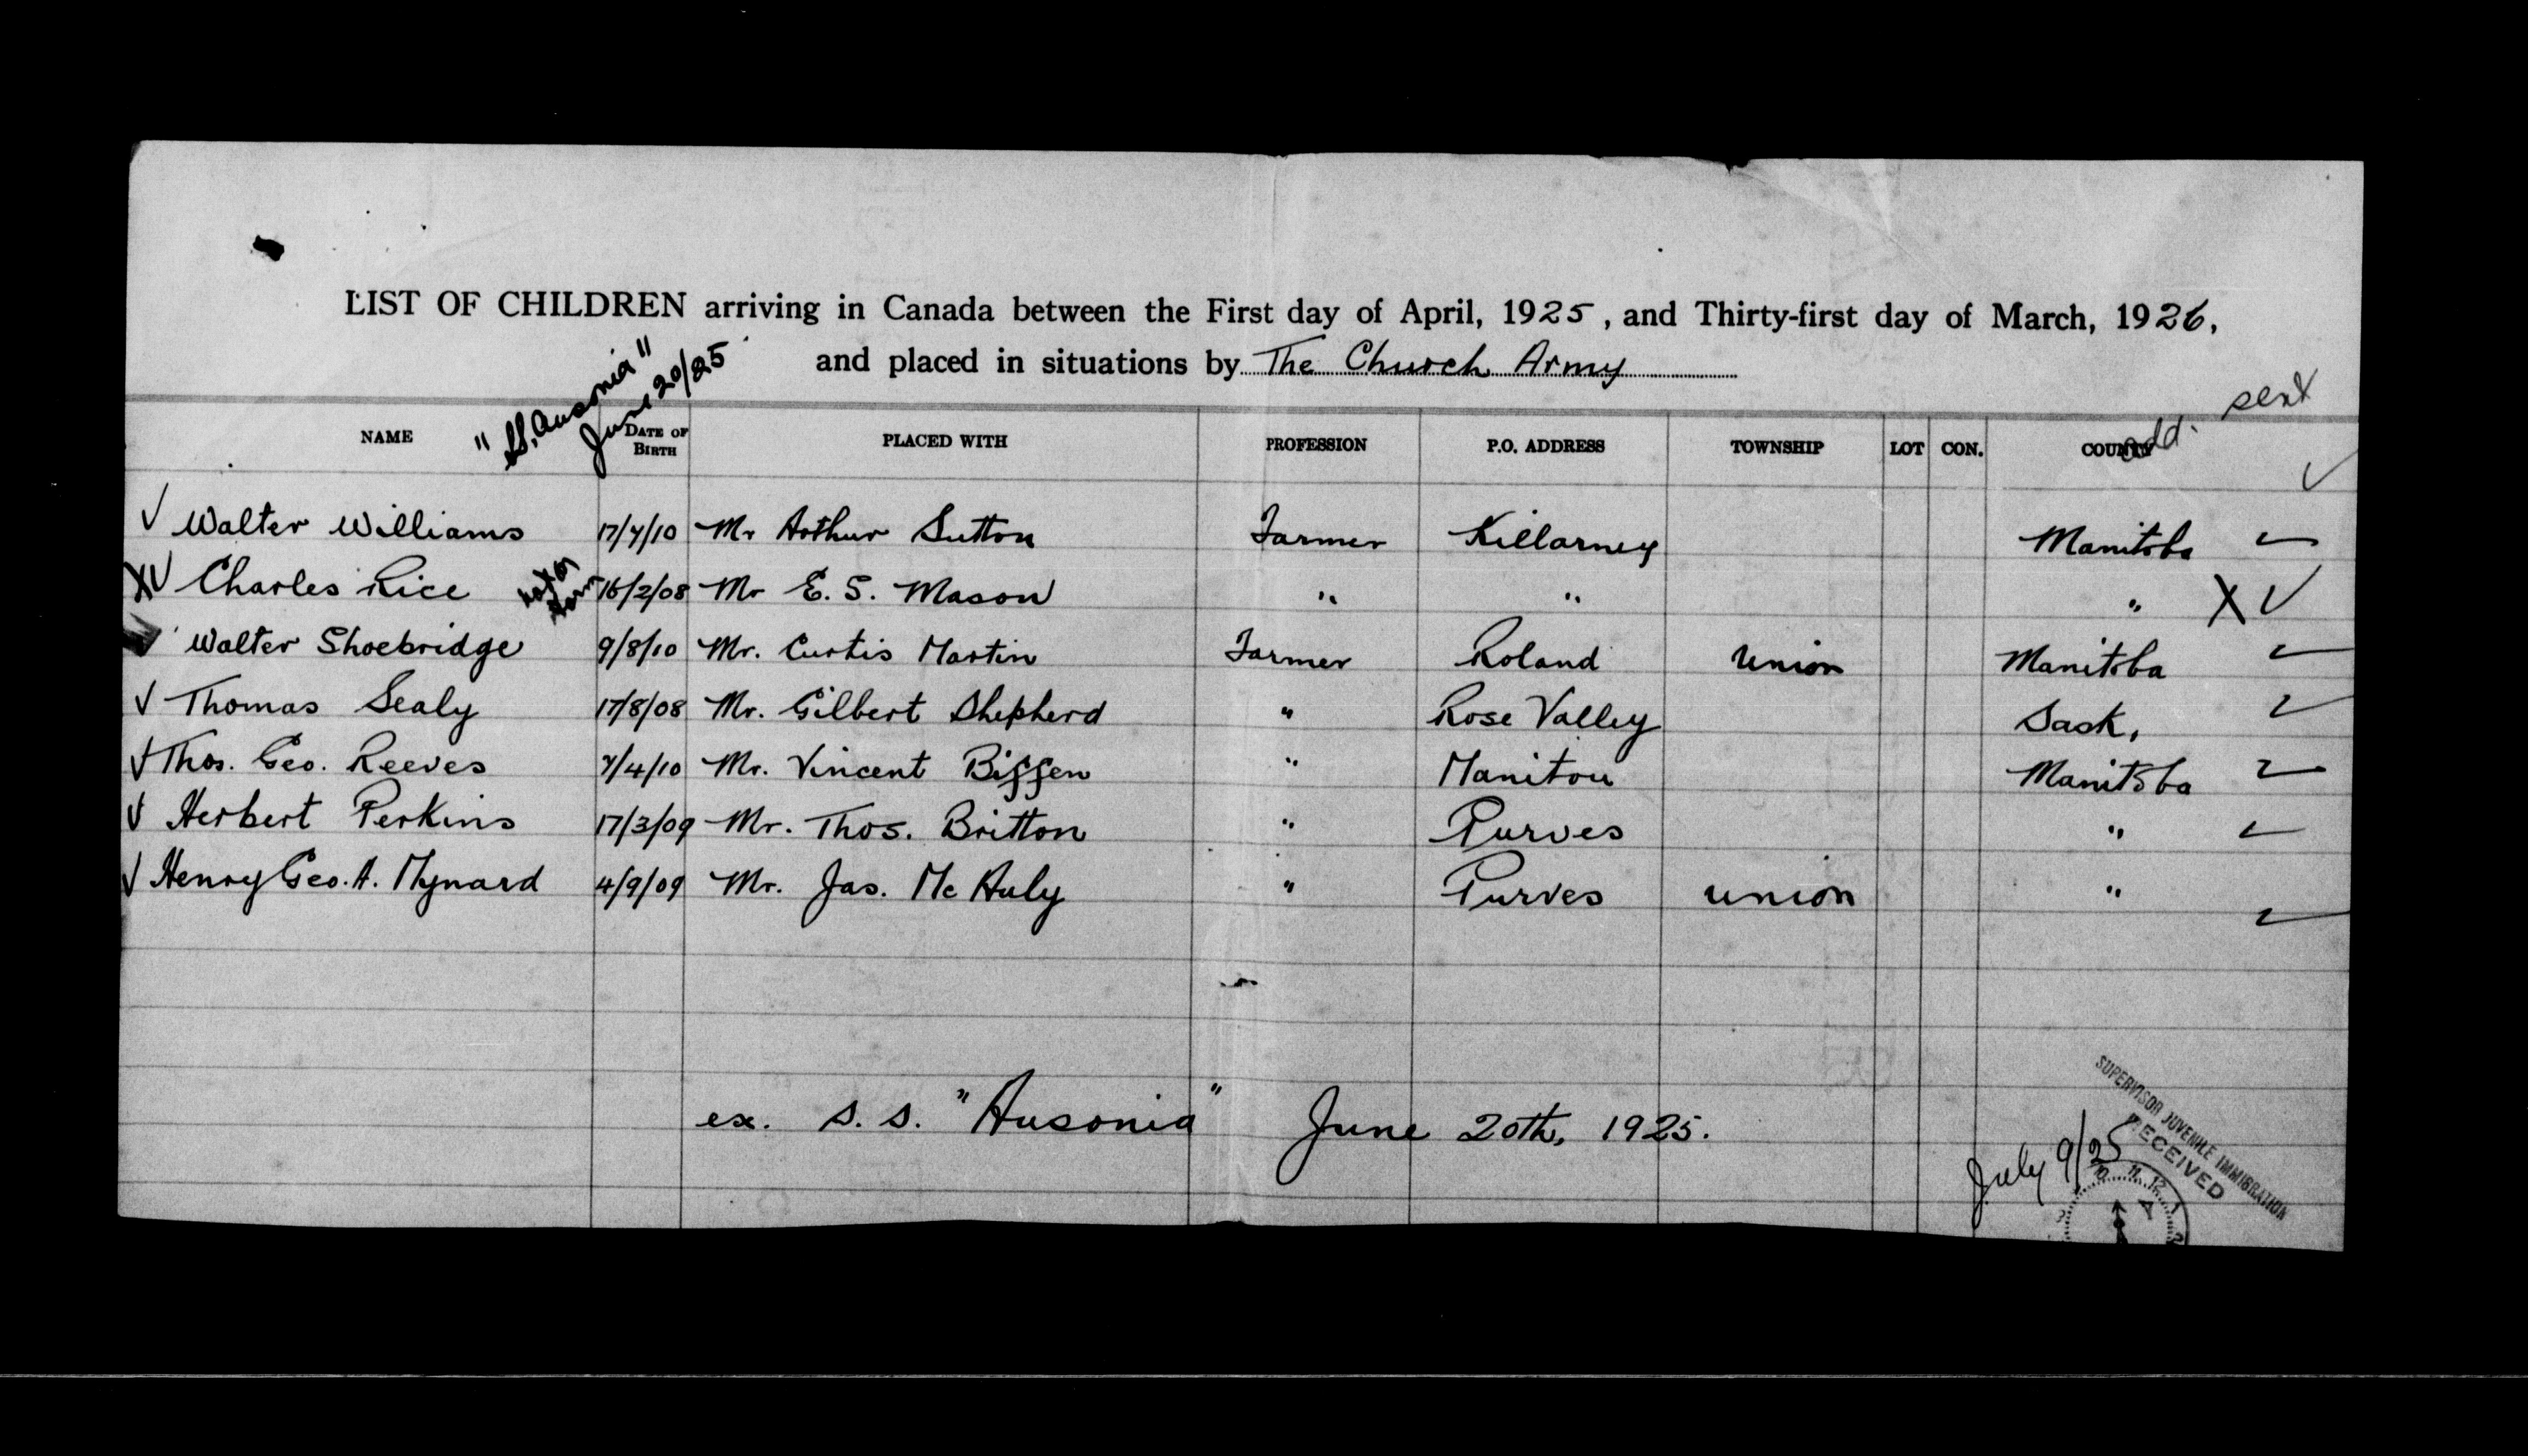 LIST OF CHILDREN arriving in Canada between the First day of April, 1925, and Thirty-first day of March, 1926,
and placed in situations by The Church Army
"SS. Ausonia"
June 20/25
sent
add.
NAME DATE OF BIRTH PLACED WITH PROFESSION P.O. ADDRESS TOWNSHIP LOT CON. COUNTY
✓
✓ Walter Williams 17/7/10 Mr Arthur Sutton Farmer Killarney Manitoba ✓
X✓ Charles Rice not on form 16/2/08 Mr E. S. Mason " " " X ✓
✓ Walter Shoebridge 9/8/10 Mr. Curtis Martin Farmer Roland Union Manitoba ✓
✓ Thomas Sealy 17/8/08 Mr. Gilbert Shepherd " Rose Valley Sask, ✓
✓ Thos. Geo. Reeves 7/4/10 Mr. Vincent Biffen " Manitou Manitoba ✓
✓ Herbert Perkins 17/3/09 Mr. Thos. Britton " Purves " ✓
✓ Henry Geo. A. Mynard 4/9/09 Mr. Jas. Mc Auly " Purves union " ✓
ex. s.s. "Ausonia" June 20th, 1925.
July 9/25
SUPERVISOR JUVENILE IMMIGRATION
RECEIVED
10 11 12 1 2
A